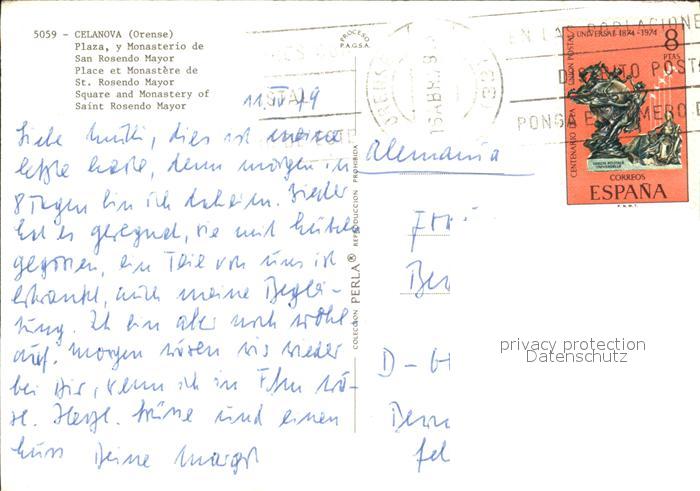 5059 - CELANOVA (Orense)
Plaza, y Monasterio de
San Rosendo Mayor
Place et Monastère de
St. Rosendo Mayor
Square and Monastery of
Saint Rosendo Mayor
PROCESO
P.A.G.S.A.
COLECCION PERLA® REPRODUCCION PROHIBIDA
EN LAS POBLACIONE
DISTRITO POSTA
PONGA EL NUMERO D
ORENSE
16 ABR. 79
CENTENARIO DE LA UNION POSTAL UNIVERSAL 1874-1974
8
PTAS
CORREOS
ESPAÑA
F.N.M.T.
Liebe Mutti, dies ist meine
letzte Karte, denn morgen in
8 Tagen bin ich daheim. Bisher
hat es geregnet, wie mit Kübeln
gegossen, ein Teil von uns ist
erkrankt, auch meine Beglei-
tung. Ich bin aber noch wohl
auf. Morgen wären wir wieder
bei Dir, wenn ich in wä-
re. Herzl. Grüsse und einen
Kuss Deine Margot
Alemania
D-
privacy protection
Datenschutz